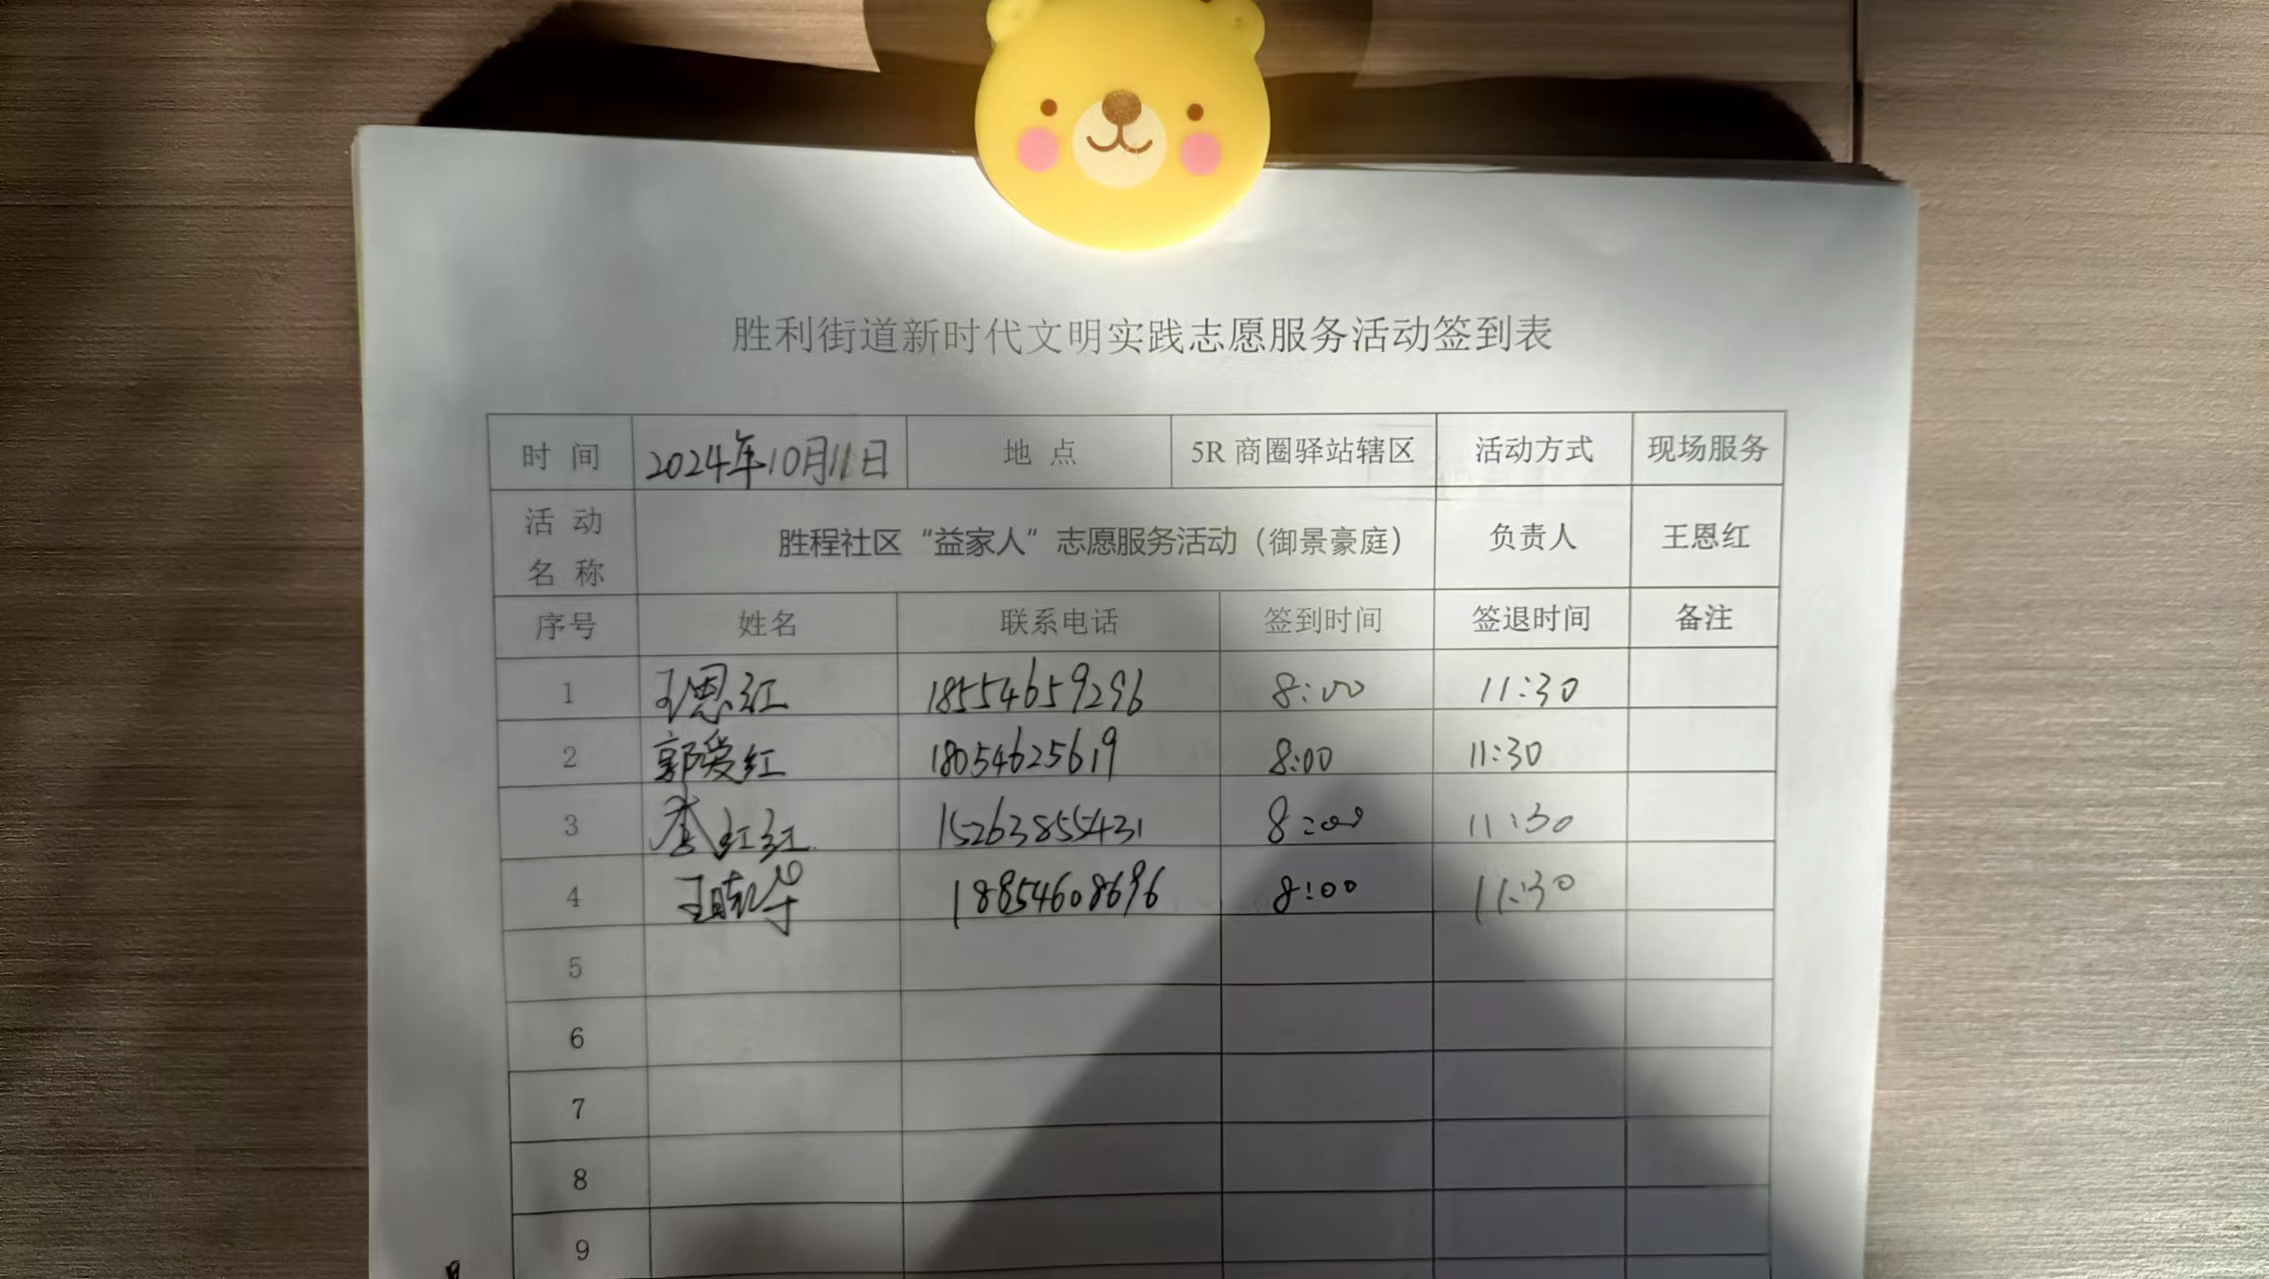 胜利街道新时代文明实践志愿服务活动签到表
时 间 2024年10月11日 地 点 5R 商圈驿站辖区 活动方式 现场服务
活 动 名 称 胜程社区“益家人”志愿服务活动（御景豪庭） 负责人 王恩红
序号 姓名 联系电话 签到时间 签退时间 备注
1 王恩红 18554659296 8:00 11:30
2 郭爱红 18054625619 8:00 11:30
3 李红红 15263855431 8:00 11:30
4 18854608696 8:00 11:30
5
6
7
8
9